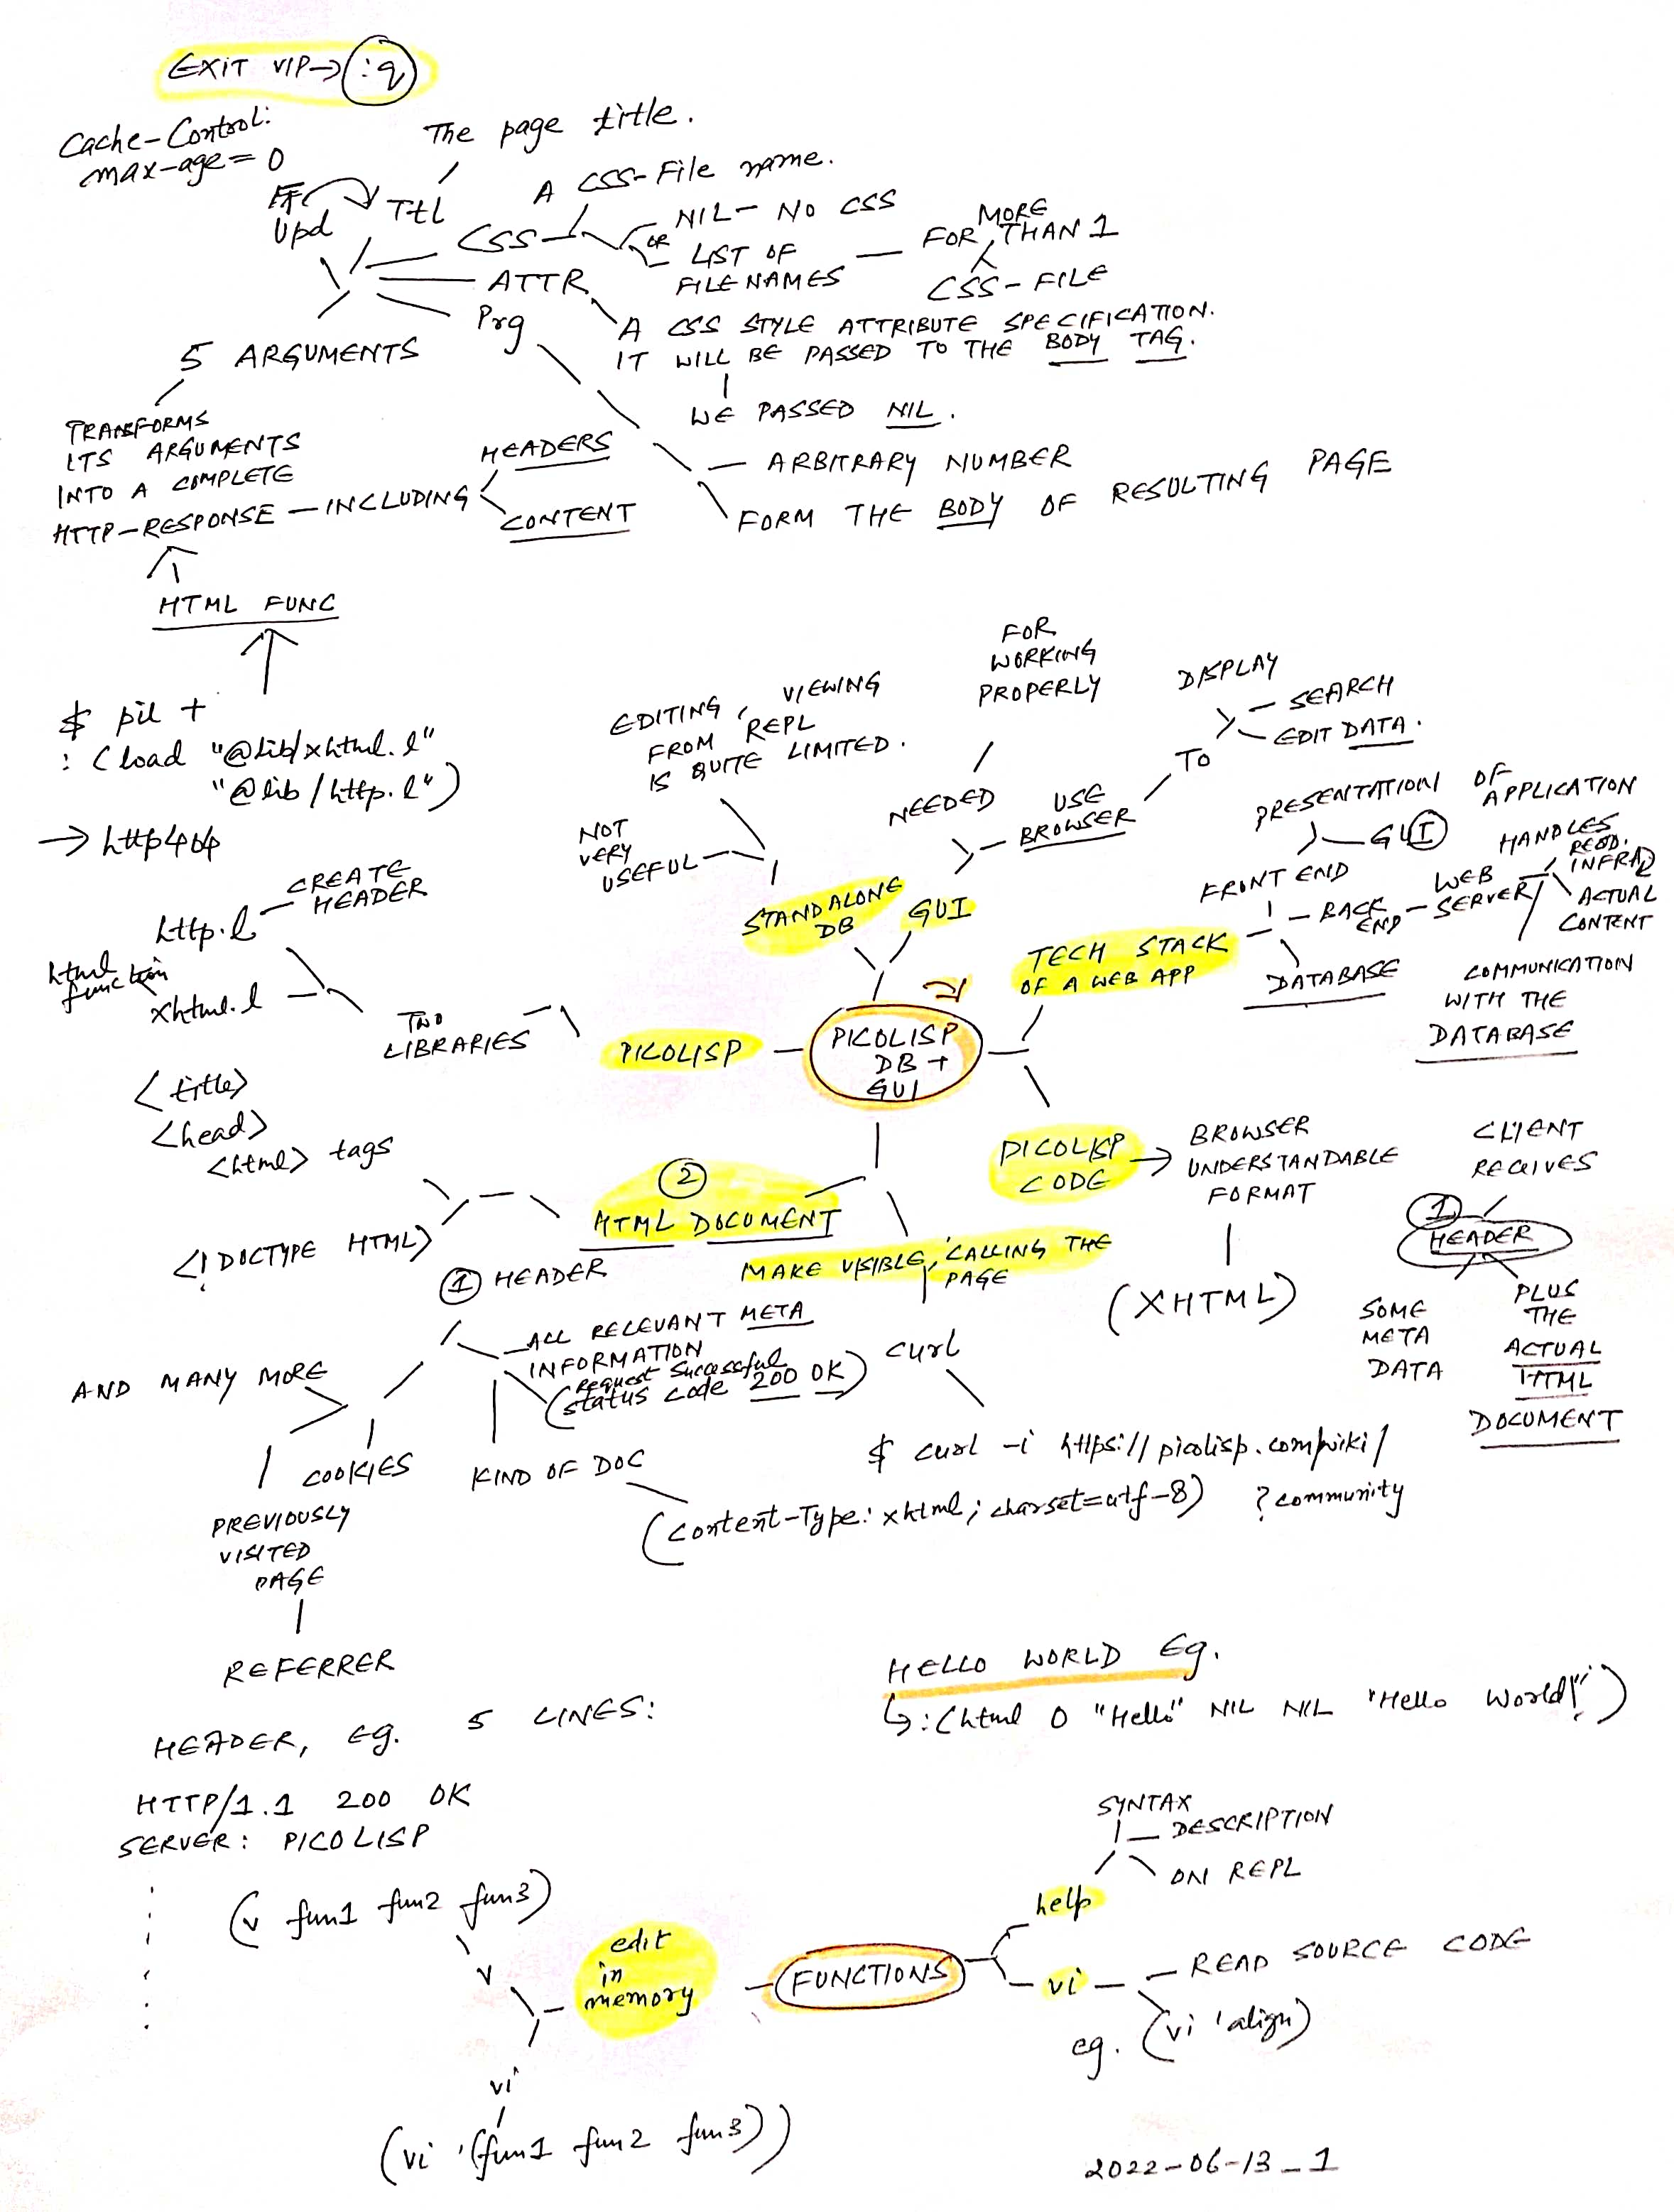 EXIT VIP → :q
Cache-Control:
max-age=0
Upd
Ttl
The page title.
CSS
A CSS-File name.
OR
NIL - NO CSS
LIST OF
FILENAMES
MORE
FOR THAN 1
CSS-FILE
ATTR
A CSS STYLE ATTRIBUTE SPECIFICATION.
IT WILL BE PASSED TO THE BODY TAG.
WE PASSED NIL.
Prg
ARBITRARY NUMBER
FORM THE BODY OF RESULTING PAGE
5 ARGUMENTS
TRANSFORMS
ITS ARGUMENTS
INTO A COMPLETE
HTTP-RESPONSE - INCLUDING
HEADERS
CONTENT
HTML FUNC
$ pil +
: (load "@lib/xhtml.l"
"@lib/http.l")
→ http404
http.l
CREATE
HEADER
html
function
xhtml.l
TWO
LIBRARIES
PICOLISP
PICOLISP
DB +
GUI
EDITING, VIEWING
FROM REPL
IS QUITE LIMITED.
NOT
VERY
USEFUL
STANDALONE
DB
GUI
FOR
WORKING
PROPERLY
NEEDED
USE
BROWSER
TO
DISPLAY
SEARCH
EDIT DATA.
TECH STACK
OF A WEB APP
PRESENTATION OF
APPLICATION
GUI
FRONT END
BACK
END
WEB
SERVER
HANDLES
REQD.
INFRA
ACTUAL
CONTENT
COMMUNICATION
WITH THE
DATABASE
DATABASE
PICOLISP
CODE
→ BROWSER
UNDERSTANDABLE
FORMAT
(XHTML)
CLIENT
RECEIVES
1
HEADER
SOME
META
DATA
PLUS
THE
ACTUAL
HTML
DOCUMENT
<title>
<head>
<html> tags
<!DOCTYPE HTML>
2
HTML DOCUMENT
MAKE VISIBLE, CALLING THE
PAGE
curl
$ curl -i https://picolisp.com/wiki/
?community
1 HEADER
ALL RELEVANT META
INFORMATION
request Sucessful
(status code 200 OK)
KIND OF DOC
(Content-Type: xhtml; charset=utf-8)
AND MANY MORE
COOKIES
PREVIOUSLY
VISITED
PAGE
REFERRER
HELLO WORLD Eg.
↳ : (html 0 "Hello" NIL NIL "Hello World!")
HEADER, Eg. 5 LINES:
HTTP/1.1 200 OK
SERVER: PICOLISP
(v fun1 fun2 fun3)
v
edit
in
memory
vi
(vi '(fun1 fun2 fun3))
FUNCTIONS
help
SYNTAX
DESCRIPTION
ON REPL
vi
READ SOURCE CODE
eg. (vi 'align)
2022-06-13_1